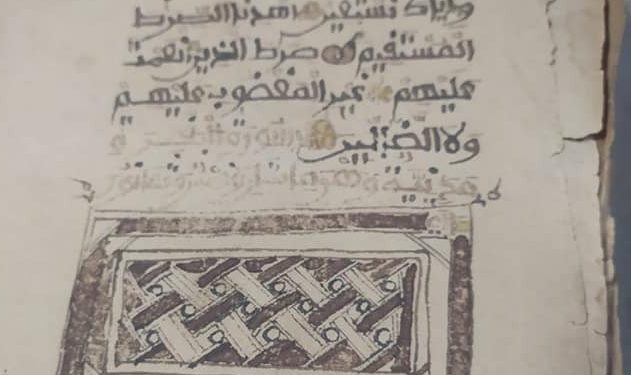 وإياك نستعين اهدنا الصرط
المستقيم صرط الذين أنعمت
عليهم غير المغضوب عليهم
ولا الضالين سورة البقرة
مدنية وهي مائتان